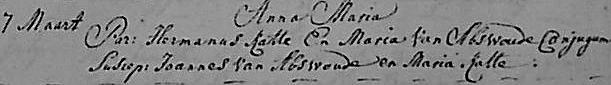 Anna Maria
7 Maart Par: Hermanus Kalle En Maria Van Abswoude Conjugum
Suscep: Joannes Van Abswoude en Maria Kalle :